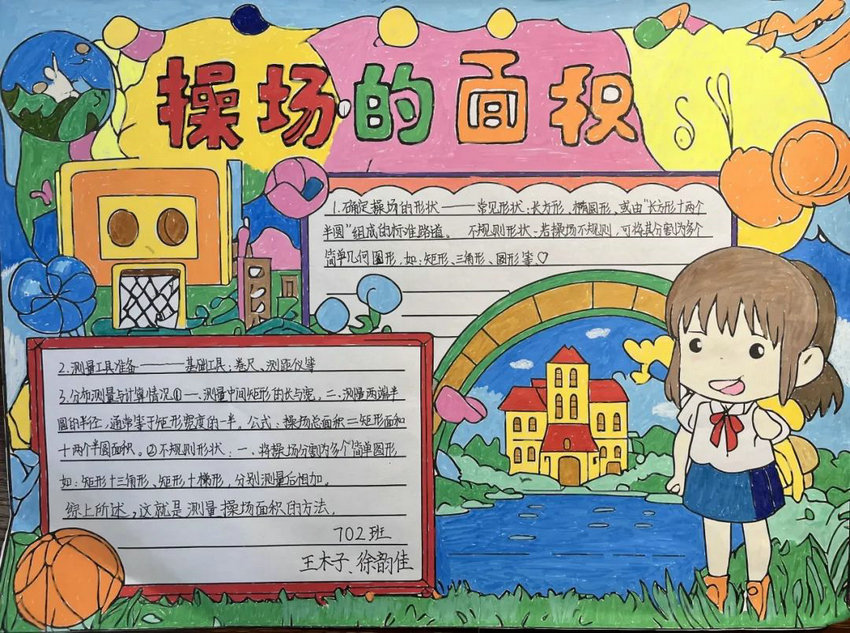 操场的面积
1.确定操场的形状——常见形状:长方形、椭圆形、或由"长方形+两个
半圆"组成的标准跑道。 不规则形状-若操场不规则,可将其分割为多个
简单几何图形,如:矩形、三角形、圆形等♡
2.测量工具准备———基础工具:卷尺、测距仪等
3.分布测量与计算情况①一、测量中间矩形的长与宽。二、测量两端半
圆的半径,通常等于矩形宽度的一半。公式:操场总面积=矩形面积
+两个半圆面积。②不规则形状:一、将操场分割为多个简单图形,
如:矩形+三角形、矩形+梯形,分别测量后相加。
综上所述,这就是测量操场面积的方法。
702班
王木子、徐韵佳